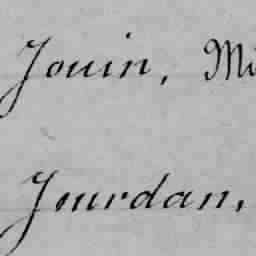 Jouin, Mi
Jourdan,